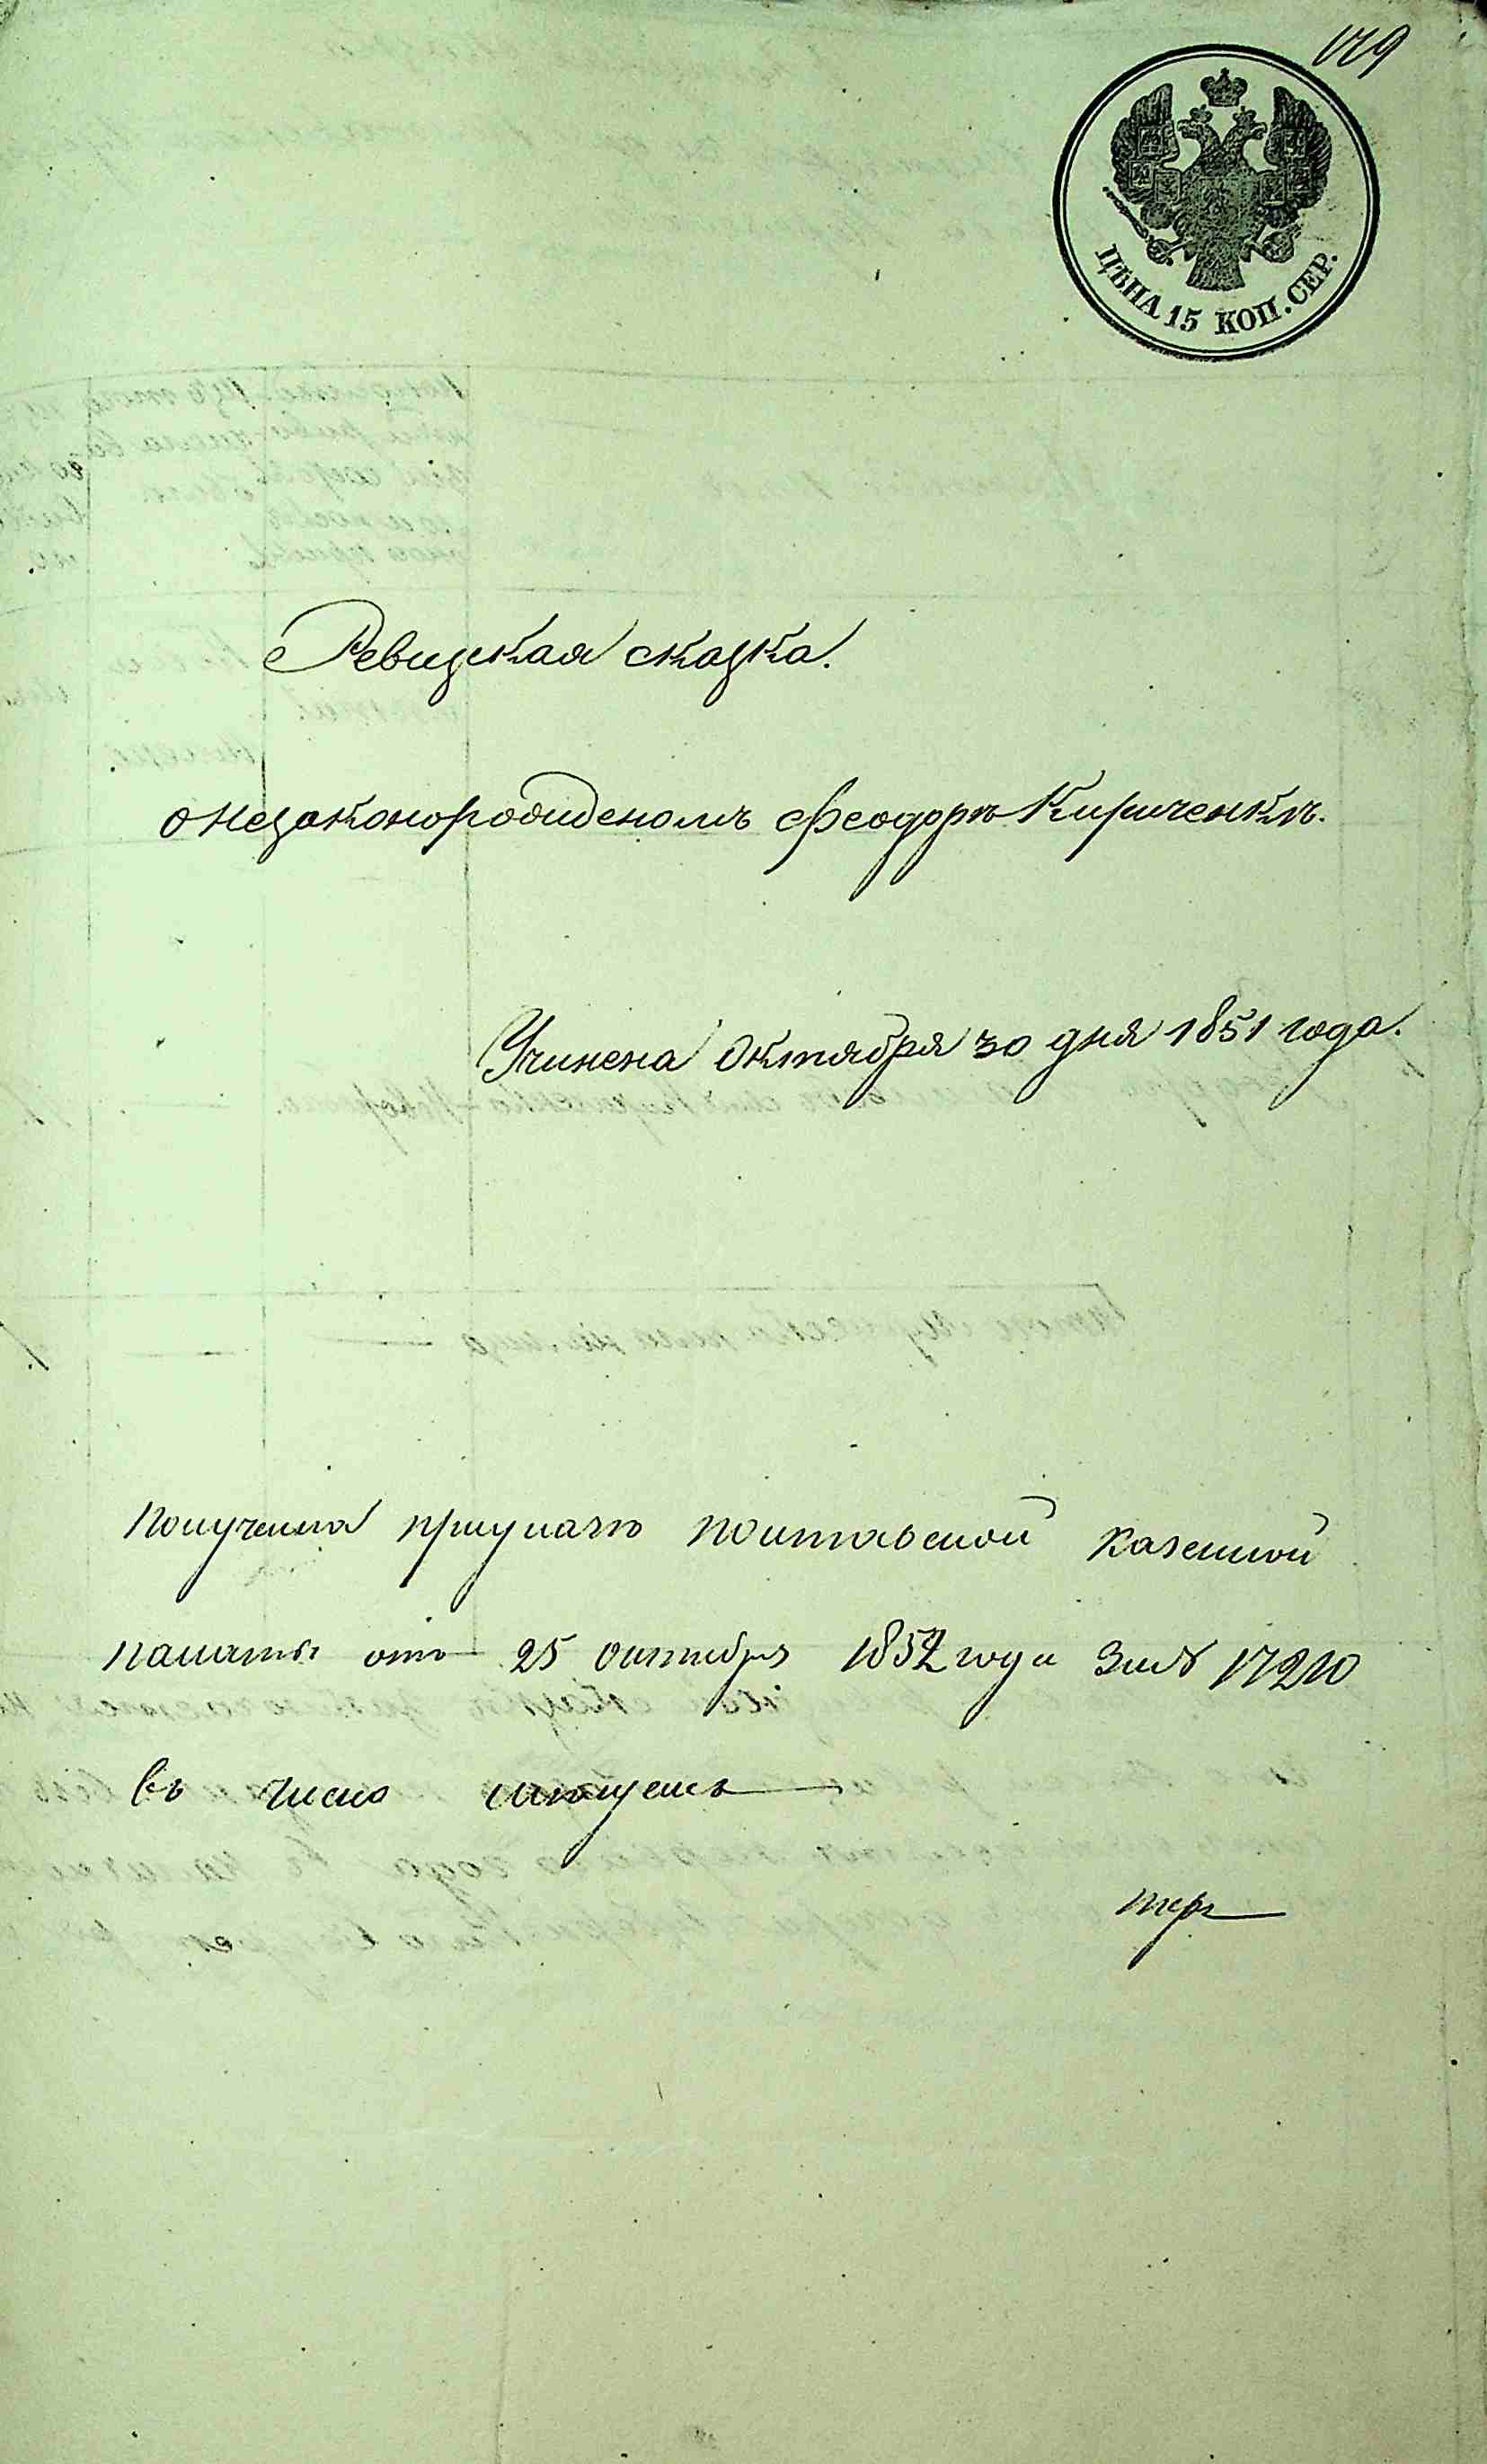 ЦѢНА 15 КОП. СЕР.
Ревизская сказка.
о незаконорожденомъ Феодорѣ Кириченкѣ.
Учинена Октября 30 дня 1851 года.
Получена при указѣ Полтавской Казенной
Палаты отъ 25 октября 1852 года за № 17210
въ число